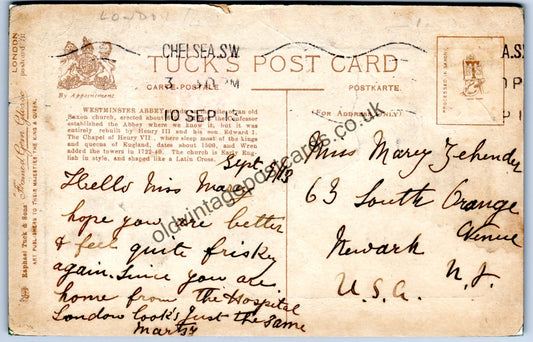 LONDON
CHELSEA.S.W
TUCK'S POST CARD
CARTE POSTALE
POSTKARTE.
By Appointment.
10 SEP 13
(For Address Only)
WESTMINSTER ABBEY
Saxon church, erected about
established the Abbey where we know it, but it was
entirely rebuilt by Henry III and his son, Edward I.
The Chapel of Henry VII, where sleep most of the kings
and queens of England, dates about 1500, and Wren
added the towers in 1722-40. The church is Early Eng-
lish in style, and shaped like a Latin Cross.
Sept
Hello Miss Mary
hope you are better
& feel quite frisky
again. Since you are
home from the Hospital
London look's just the same
Miss Mary Zehender
63 South Orange
Avenue
Newark N.J.
U.S.A.
Raphael Tuck & Sons'
ART PUBLISHERS TO THEIR MAJESTIES THE KING & QUEEN.
PROCESSED IN SAXONY
oldvintagepostcards.co.uk